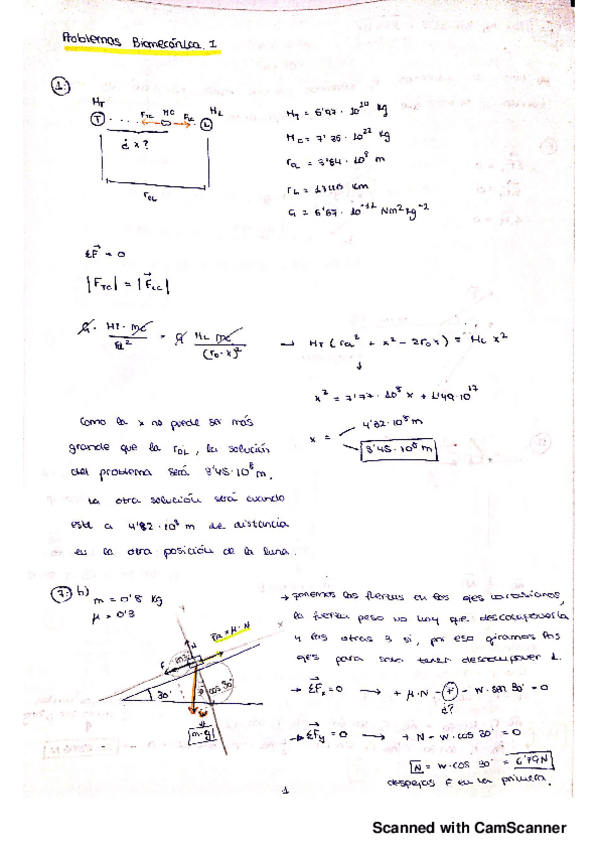 Problemas Biomecánica. 1
1:
M_T F_TC MC F_LC M_L
T L
¿x?
r_CL
M_T = 5'97 · 10^20 kg
M_C = 7'35 · 10^22 kg
r_CL = 3'84 · 10^8 m
r_L = 1740 km
G = 6'67 · 10^-11 Nm^2 kg^-2
ΣF = 0
|F_TC| = |F_LC|
G · MT · mc = G M_L mc → M_T (r_CL^2 + x^2 - 2r_0 x) = M_L x^2
(r_0 - x)^2
↓
x^2 = 7'77 · 10^8 x + 1'49 · 10^17
x =
4'32 · 10^8 m
3'45 · 10^8 m
Como la x no puede ser más
grande que la r_OL, la solución
del problema será 3'45 · 10^8 m.
La otra solución será cuando
esté a 4'32 · 10^8 m de distancia
en la otra posición de la luna.
7: b)
m = 0'8 kg
μ = 0'3
F_R = μ · N
N
F
x
30°
cos 30°
W
m·g
→ Ponemos las fuerzas en los ejes cartesianos,
la fuerza peso no hay que descomponerla
y las otras 3 sí, por eso giramos los
ejes para solo tener descomponer 1.
→ ΣF_x = 0 → + μ · N - F - W · sen 30° = 0
¿?
→ ΣF_y = 0 → + N - W · cos 30° = 0
N = W · cos 30° = 6'79N
despejas F en la primera.
1
Scanned with CamScanner